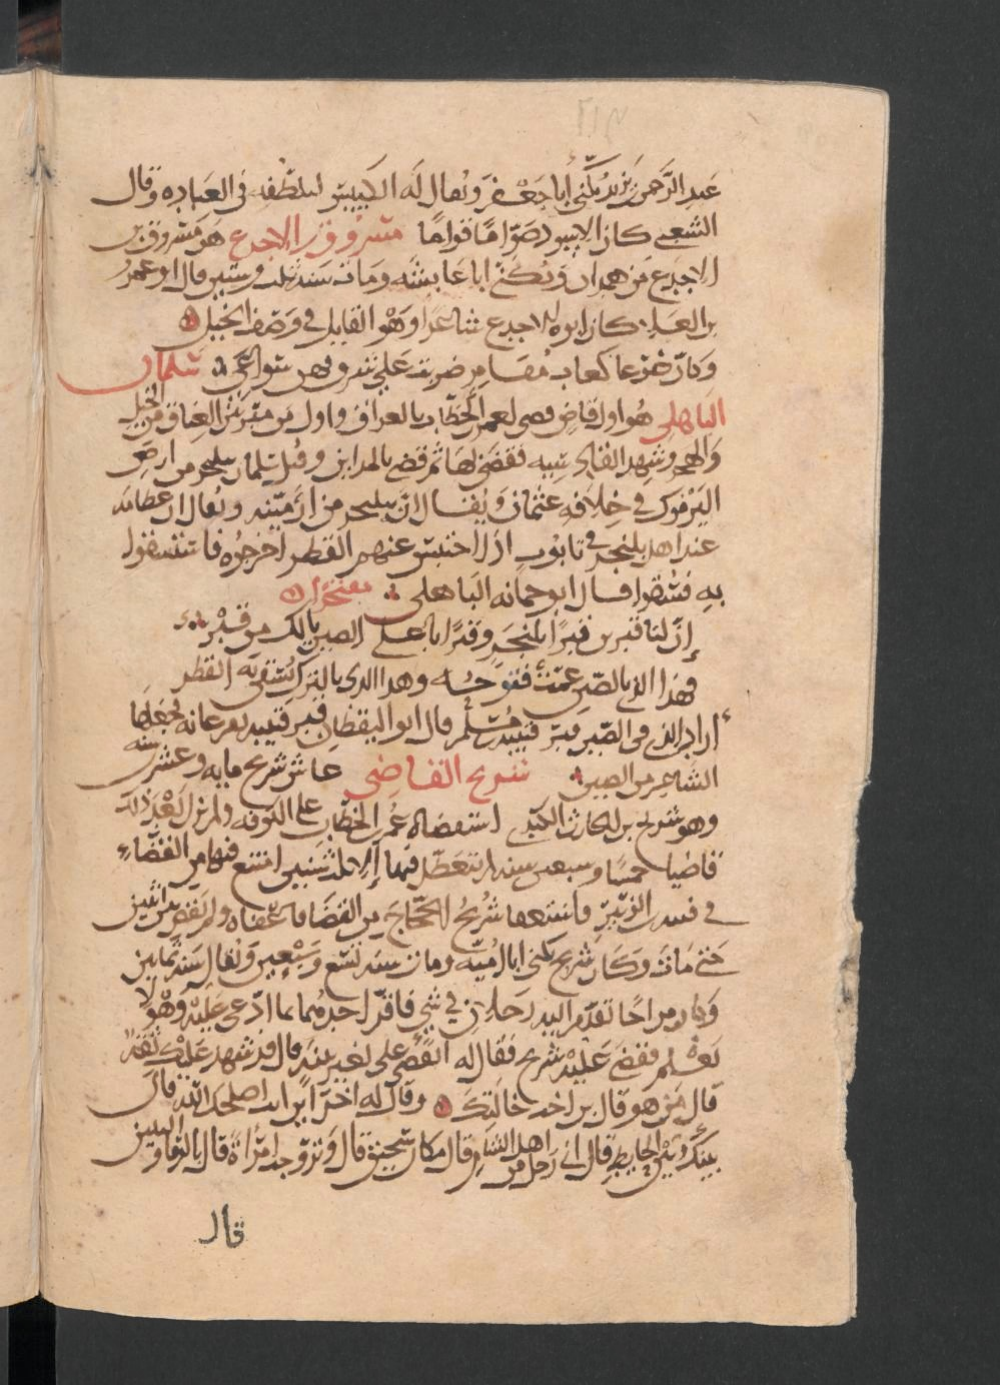 عبد الرحمن بن يزيد يكنى أبا جعفر ويقال له الكيس لتلطفه في العباده وقال
الشعبي كان الاسود صوّاما قواما مسروق بن الاجدع هو مسروق بن
الاجدع من همدان ويكنى ابا عايشه ومات سنه ثلث وستين قال ابو عمرو
بن العلا كان ابوه الاجدع شاعرا وهو القايل في وصف الخيل
وكأن صرعاها كعاب مقامر ضربت على شزن فهن شواعى سلمان
الباهلي هو اول قاض قضى لعمر بن الخطاب بالعراق واول من ميز بين العتاق من الخيل
والهجن وشهد القادسيه فقضى بها ثم قضى بالمداين وقتل سلمان ببلنجر من ارض
اليرموك في خلافه عثمان ويقال ان بلنجر من ارمينيه ويقال ان عظامه
عند اهل بلنجر في تابوت اذا احتبس عنهم القطر اخرجوه فاستسقوا
به فسقوا فقال ابو جمانه الباهلي مفتخرا
إن لنا قبرين قبرا ببلنجر وقبرا باعلى الصين يالك من قبر
فهذا الذي بالصين عمت فتوحه وهذا الذي بالترك يسقى به القطر
أراد بالذي في الصين قبر قتيبه بن مسلم قال ابو اليقظان قبر قتيبه بفرغانه فجعلها
الشاعر من الصين شريح القاضي عاش شريح مايه وعشرين سنه
وهو شريح بن الحارث الكندي استقضاه عمر بن الخطاب على الكوفه ولم يزل بعد ذلك
قاضيا خمسا وسبعين سنه لم يتعطل فيها إلا ثلث سنين امتنع فيها من القضاء
في فتنه ابن الزبير فاستعفا شريح الحجاج من القضا فاعفاه ولم يقض بين اثنين
حتى مات وكان شريح يكنى ابا اميه ومات سنه تسع وسبعين ويقال سنه ثمانين
وكان مزاحا تقدم اليه رجلان في شي فاقر احدهما بما ادعى عليه وهو لا
يعلم فقضى عليه شريح فقال له اتقضي علي بغير بينه قال قد شهد عليك ثقه
قال من هو قال بن اخت خالتك وقال له اخر اين انت اصلحك الله قال
بينك وبين الحايط قال اني رجل من اهل الشام قال مكان سحيق قال وتزوجت امرأة قال بالرفا والبنين
قال